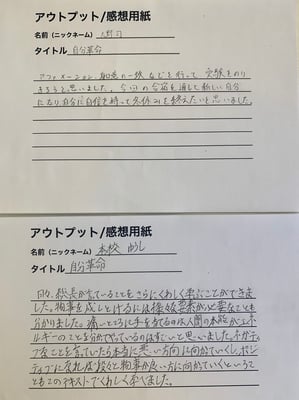 アウトプット/感想用紙
名前（ニックネーム）
タイトル 自分革命
アファメーション、知恵の一線などを行って受験をのり
きろうと思いました。今回の合宿を通して新しい自分
になり自分に自信を持って冬休みを終えたいと思いました。
アウトプット/感想用紙
名前（ニックネーム） 本校
タイトル 自分革命
日々、塾長が言っていることをさらにくわしく学ぶことができま
した。物事を成しとげるには様々な要素が必要なことも
分かりました。痛いところに手を当てるのは人間の本能がエネ
ルギーのことを分かってやっているのはすごいと思いました。ネガティ
ブなことを言っていたら本当に悪い方向に向かていくし、ポジ
ティブになれば段々と物事が良い方に向かていくというこ
ともこのテキストでくわしく学べました。